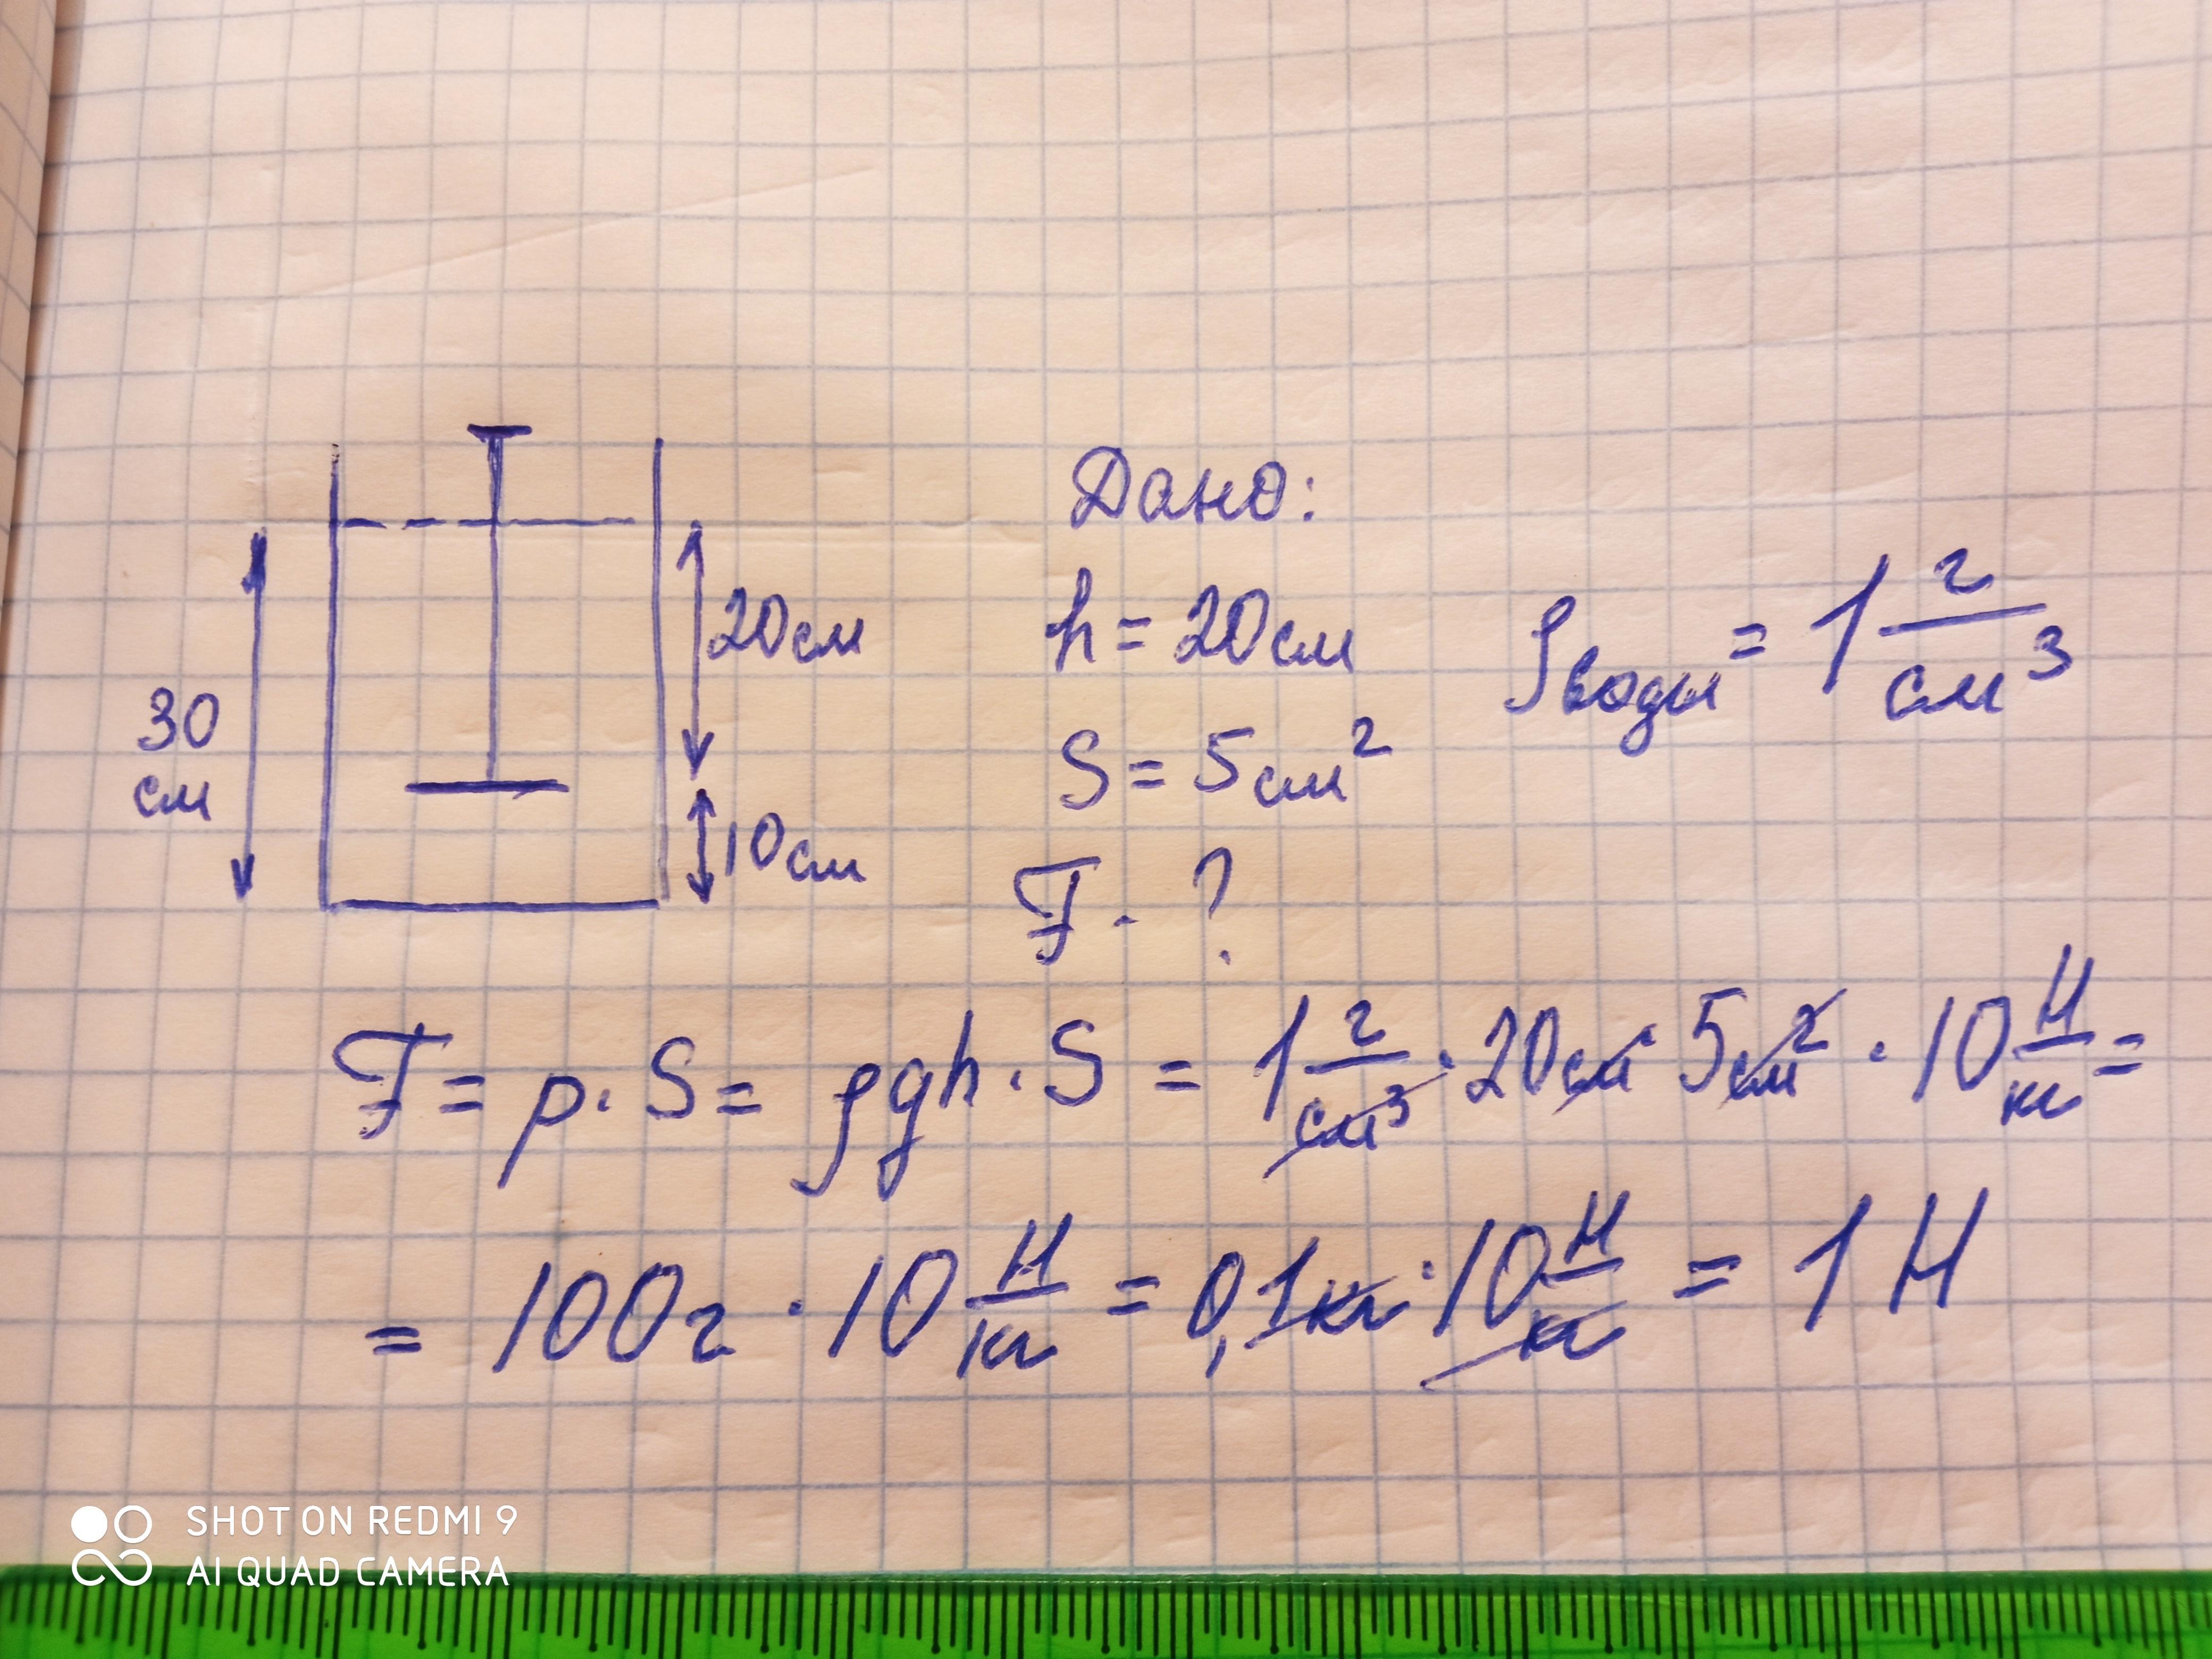 30
см
20см
10см
Дано:
h = 20см
S = 5см²
F - ?
ρводы = 1 г/см³
F = p · S = ρgh · S = 1 г/см³ · 20см · 5см² · 10 Н/кг =
= 100г · 10 Н/кг = 0,1кг · 10 Н/кг = 1 Н
SHOT ON REDMI 9
AI QUAD CAMERA